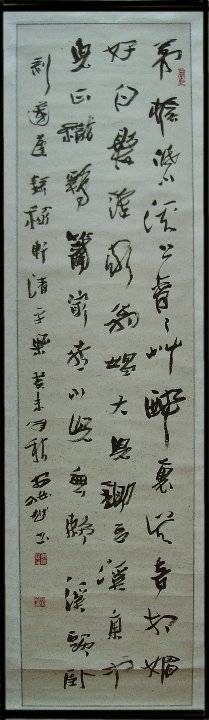 茅檐低小溪上青々艸醉裏吳音相媚
好白髮誰家翁媪大兒鋤豆溪東中
兒正織鷄籠最喜小兒無賴溪頭卧
剥蓮蓬稼軒清平樂癸未書